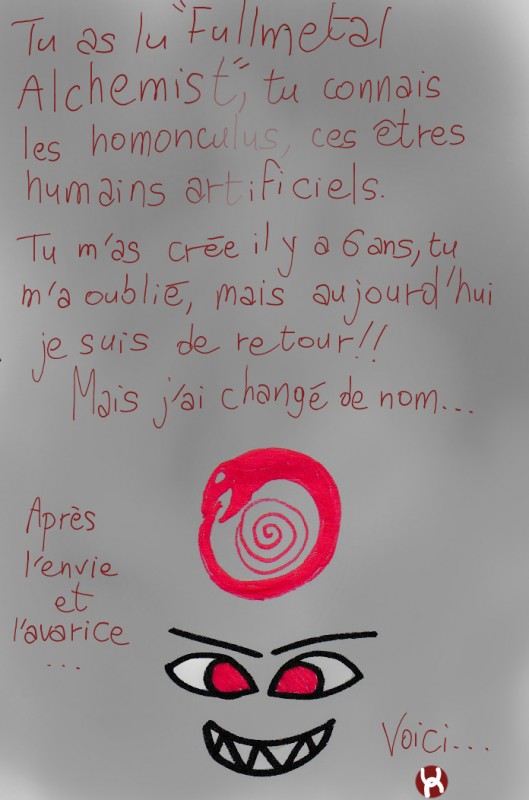 Tu as lu "Fullmetal
Alchemist", tu connais
les homonculus, ces êtres
humains artificiels.
Tu m'as crée il y a 6 ans, tu
m'a oublié, mais aujourd'hui
je suis de retour!!
Mais j'ai changé de nom...
Après
l'envie
et
l'avarice
...
Voici...